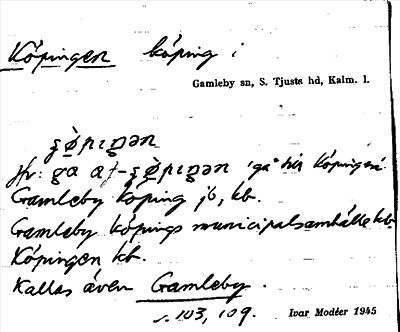 Köpingen köping i
Gamleby sn, S. Tjusts hd, Kalm. l.
ga at
Gamleby köping jb, kb.
Gamleby köpings municipalsamhälle kb.
Köpingen kb.
Kallas även Gamleby.
s. 103, 109. Ivar Modéer 1945